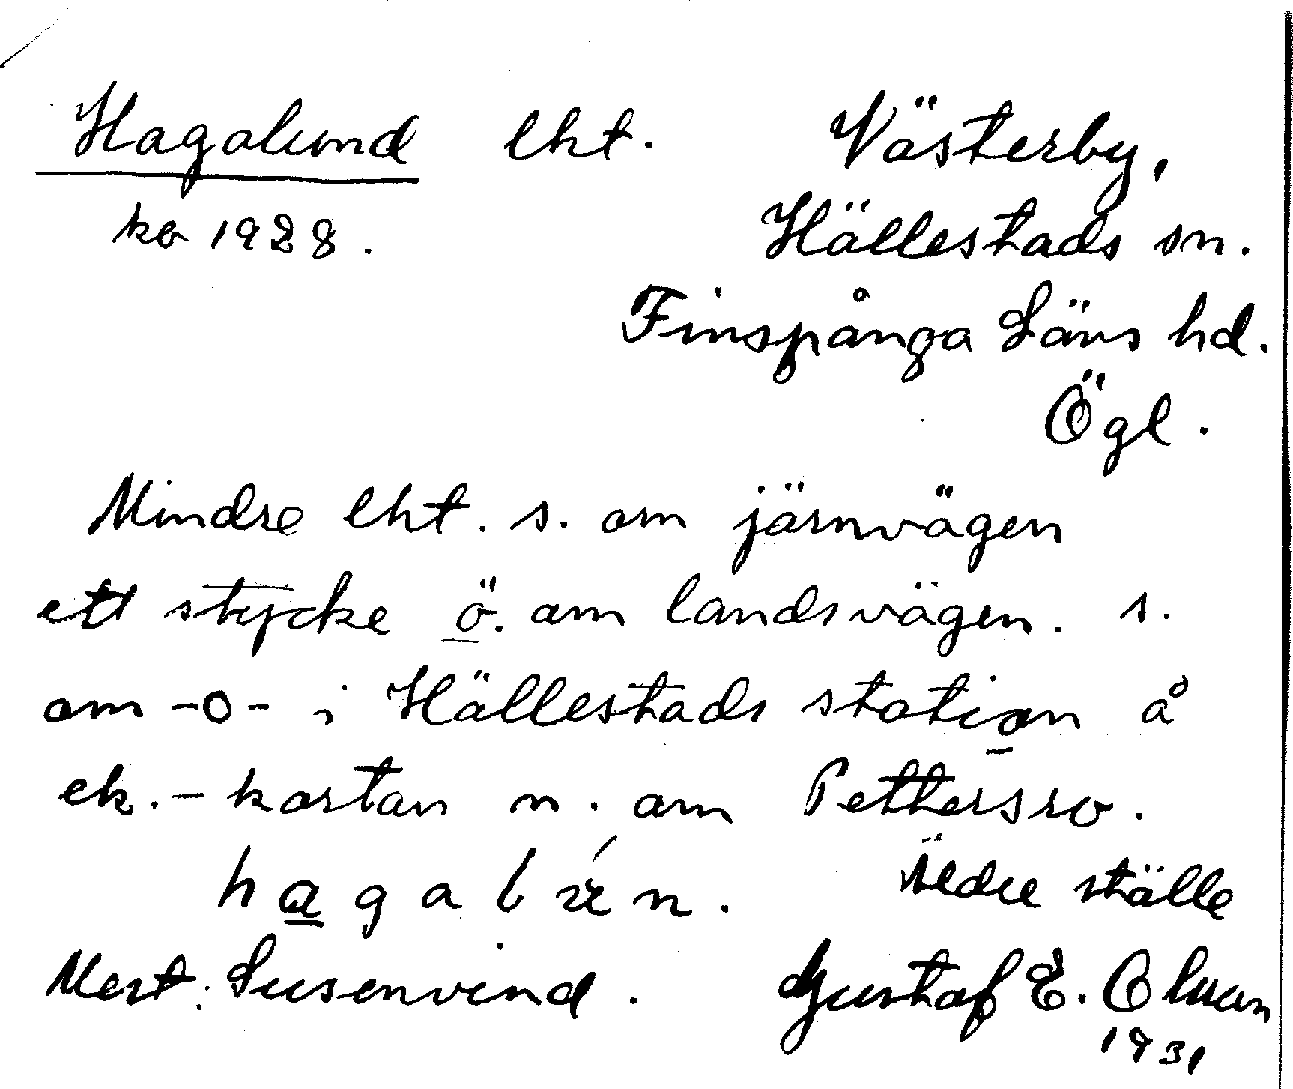 Hagalund lht. Västerby,
ko 1928. Hällestads sn.
Finspånga Läns hd.
Ögl.
Mindre lht. s. om järnvägen
ett stycke ö. om landsvägen. s.
om -o- i Hällestads station å
ek.-kartan n. om Pettersro.
Äldre ställe
Mest: Susenvind. Gustaf E. Olsson
1931